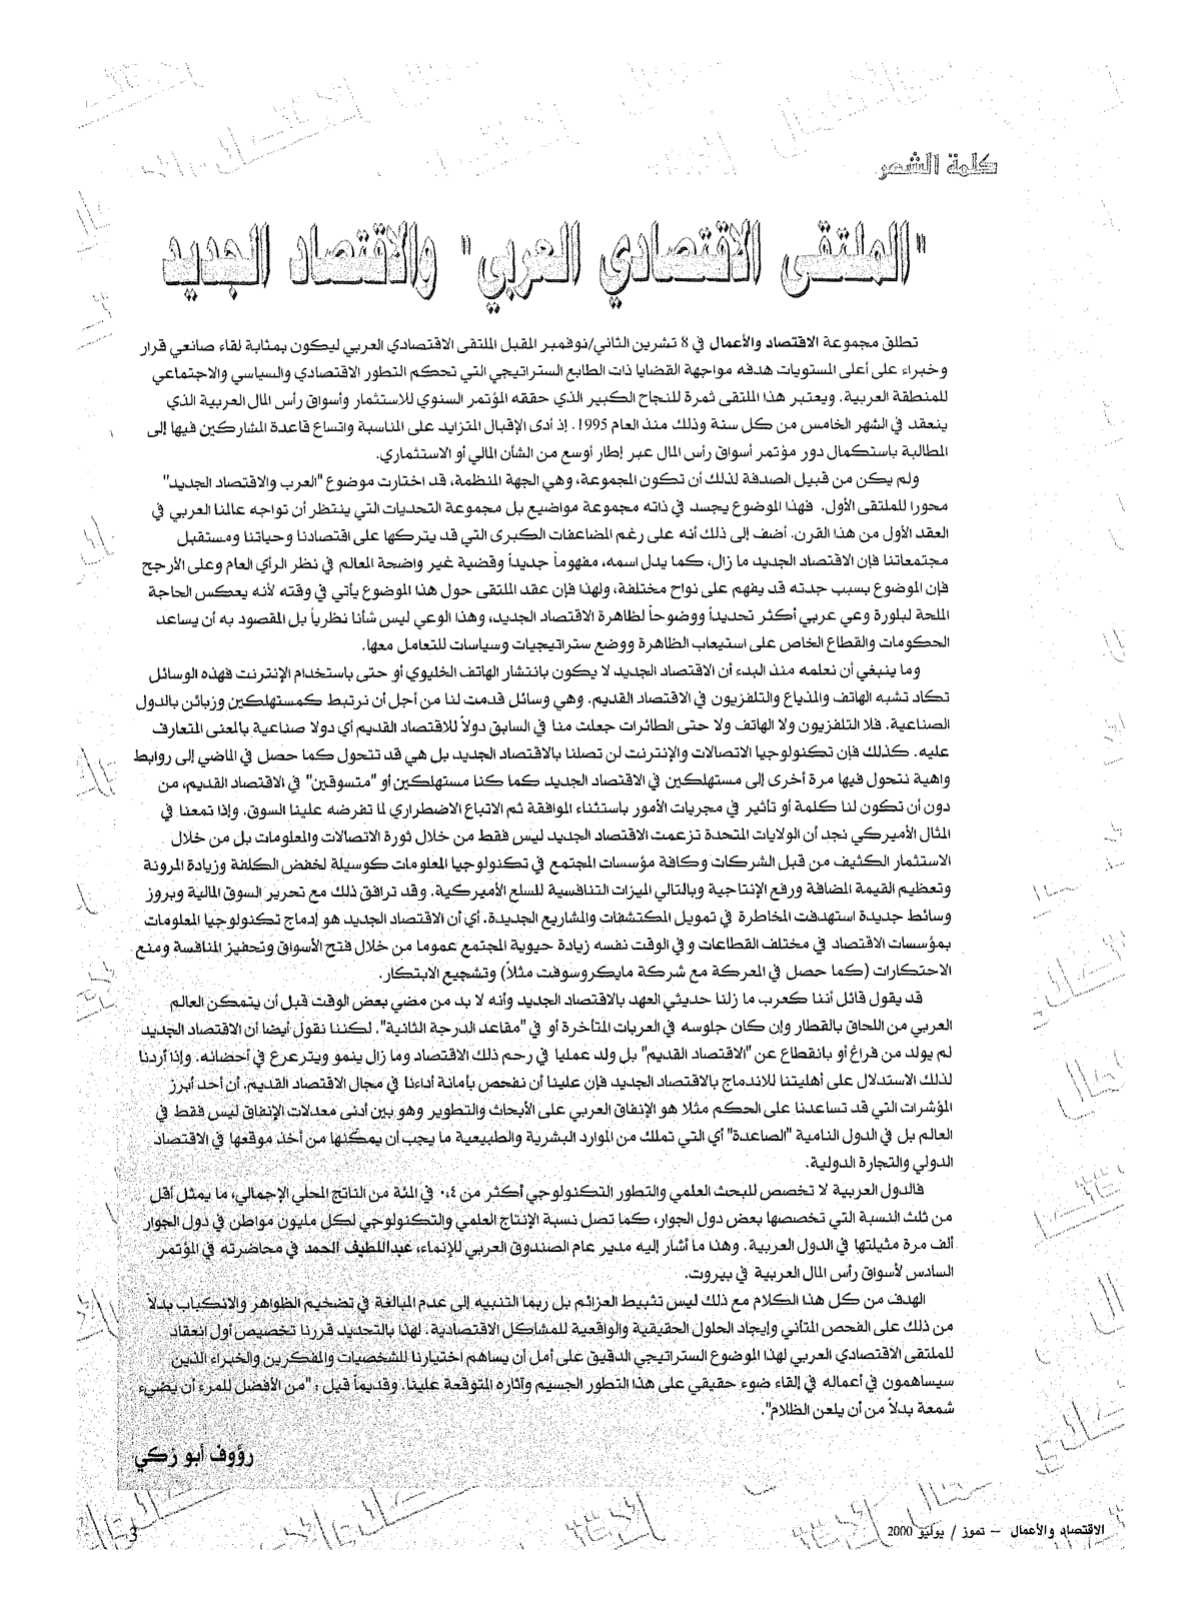 كلمة الشهر
"الملتقى الاقتصادي العربي" والاقتصاد الجديد
تطلق مجموعة الاقتصاد والأعمال في 8 تشرين الثاني/نوفمبر المقبل الملتقى الاقتصادي العربي ليكون بمثابة لقاء صانعي قرار
وخبراء على أعلى المستويات هدفه مواجهة القضايا ذات الطابع الستراتيجي التي تحكم التطور الاقتصادي والسياسي والاجتماعي
للمنطقة العربية. ويعتبر هذا الملتقى ثمرة للنجاح الكبير الذي حققه المؤتمر السنوي للاستثمار وأسواق رأس المال العربية الذي
ينعقد في الشهر الخامس من كل سنة وذلك منذ العام 1995. إذ أدى الإقبال المتزايد على المناسبة واتساع قاعدة المشاركين فيها إلى
المطالبة باستكمال دور مؤتمر أسواق رأس المال عبر إطار أوسع من الشأن المالي أو الاستثماري.
ولم يكن من قبيل الصدفة لذلك أن تكون المجموعة، وهي الجهة المنظمة، قد اختارت موضوع "العرب والاقتصاد الجديد"
محورا للملتقى الأول. فهذا الموضوع يجسد في ذاته مجموعة مواضيع بل مجموعة التحديات التي ينتظر أن تواجه عالمنا العربي في
العقد الأول من هذا القرن. أضف إلى ذلك أنه على رغم المضاعفات الكبرى التي قد يتركها على اقتصادنا وحياتنا ومستقبل
مجتمعاتنا فإن الاقتصاد الجديد ما زال، كما يدل اسمه، مفهوماً جديداً وقضية غير واضحة المعالم في نظر الرأي العام وعلى الأرجح
فإن الموضوع بسبب جدته قد يفهم على نواح مختلفة، ولهذا فإن عقد الملتقى حول هذا الموضوع يأتي في وقته لأنه يعكس الحاجة
الملحة لبلورة وعي عربي أكثر تحديداً ووضوحاً لظاهرة الاقتصاد الجديد، وهذا الوعي ليس شأنا نظرياً بل المقصود به أن يساعد
الحكومات والقطاع الخاص على استيعاب الظاهرة ووضع ستراتيجيات وسياسات للتعامل معها.
وما ينبغي أن نعلمه منذ البدء أن الاقتصاد الجديد لا يكون بانتشار الهاتف الخليوي أو حتى باستخدام الإنترنت فهذه الوسائل
تكاد تشبه الهاتف والمذياع والتلفزيون في الاقتصاد القديم. وهي وسائل قدمت لنا من أجل أن نرتبط كمستهلكين وزبائن بالدول
الصناعية. فلا التلفزيون ولا الهاتف ولا حتى الطائرات جعلت منا في السابق دولاً للاقتصاد القديم أي دولا صناعية بالمعنى المتعارف
عليه. كذلك فإن تكنولوجيا الاتصالات والإنترنت لن تصلنا بالاقتصاد الجديد بل هي قد تتحول كما حصل في الماضي إلى روابط
واهية نتحول فيها مرة أخرى إلى مستهلكين في الاقتصاد الجديد كما كنا مستهلكين أو "متسوقين" في الاقتصاد القديم، من
دون أن تكون لنا كلمة أو تأثير في مجريات الأمور باستثناء الموافقة ثم الاتباع الاضطراري لما تفرضه علينا السوق. وإذا تمعنا في
المثال الأميركي نجد أن الولايات المتحدة تزعمت الاقتصاد الجديد ليس فقط من خلال ثورة الاتصالات والمعلومات بل من خلال
الاستثمار الكثيف من قبل الشركات وكافة مؤسسات المجتمع في تكنولوجيا المعلومات كوسيلة لخفض الكلفة وزيادة المرونة
وتعظيم القيمة المضافة ورفع الإنتاجية وبالتالي الميزات التنافسية للسلع الأميركية. وقد ترافق ذلك مع تحرير السوق المالية وبروز
وسائط جديدة استهدفت المخاطرة في تمويل المكتشفات والمشاريع الجديدة. أي أن الاقتصاد الجديد هو إدماج تكنولوجيا المعلومات
بمؤسسات الاقتصاد في مختلف القطاعات وفي الوقت نفسه زيادة حيوية المجتمع عموما من خلال فتح الأسواق وتحفيز المنافسة ومنع
الاحتكارات (كما حصل في المعركة مع شركة مايكروسوفت مثلاً) وتشجيع الابتكار.
قد يقول قائل أننا كعرب ما زلنا حديثي العهد بالاقتصاد الجديد وأنه لا بد من مضي بعض الوقت قبل أن يتمكن العالم
العربي من اللحاق بالقطار وإن كان جلوسه في العربات المتأخرة أو في "مقاعد الدرجة الثانية". لكننا نقول أيضا أن الاقتصاد الجديد
لم يولد من فراغ أو بانقطاع عن "الاقتصاد القديم" بل ولد عمليا في رحم ذلك الاقتصاد وما زال ينمو ويترعرع في أحضانه. وإذا أردنا
لذلك الاستدلال على أهليتنا للاندماج بالاقتصاد الجديد فإن علينا أن نفحص بأمانة أداءنا في مجال الاقتصاد القديم. أن أحد أبرز
المؤشرات التي قد تساعدنا على الحكم مثلا هو الإنفاق العربي على الأبحاث والتطوير وهو بين أدنى معدلات الإنفاق ليس فقط في
العالم بل في الدول النامية "الصاعدة" أي التي تملك من الموارد البشرية والطبيعية ما يجب أن يمكنها من أخذ موقعها في الاقتصاد
الدولي والتجارة الدولية.
فالدول العربية لا تخصص للبحث العلمي والتطور التكنولوجي أكثر من ٠،٤ في المئة من الناتج المحلي الإجمالي، ما يمثل أقل
من ثلث النسبة التي تخصصها بعض دول الجوار، كما تصل نسبة الإنتاج العلمي والتكنولوجي لكل مليون مواطن في دول الجوار
ألف مرة مثيلتها في الدول العربية. وهذا ما أشار إليه مدير عام الصندوق العربي للإنماء، عبداللطيف الحمد في محاضرته في المؤتمر
السادس لأسواق رأس المال العربية في بيروت.
الهدف من كل هذا الكلام مع ذلك ليس تثبيط العزائم بل ربما التنبيه إلى عدم المبالغة في تضخيم الظواهر والانكباب بدلاً
من ذلك على الفحص المتأني وإيجاد الحلول الحقيقية والواقعية للمشاكل الاقتصادية. لهذا بالتحديد قررنا تخصيص أول انعقاد
للملتقى الاقتصادي العربي لهذا الموضوع الستراتيجي الدقيق على أمل أن يساهم اختيارنا للشخصيات والمفكرين والخبراء الذين
سيساهمون في أعماله في إلقاء ضوء حقيقي على هذا التطور الجسيم وآثاره المتوقعة علينا. وقديماً قيل: "من الأفضل للمرء أن يضيء
شمعة بدلاً من أن يلعن الظلام".
رؤوف أبو زكي
الاقتصاد والأعمال – تموز / يوليو 2000
3